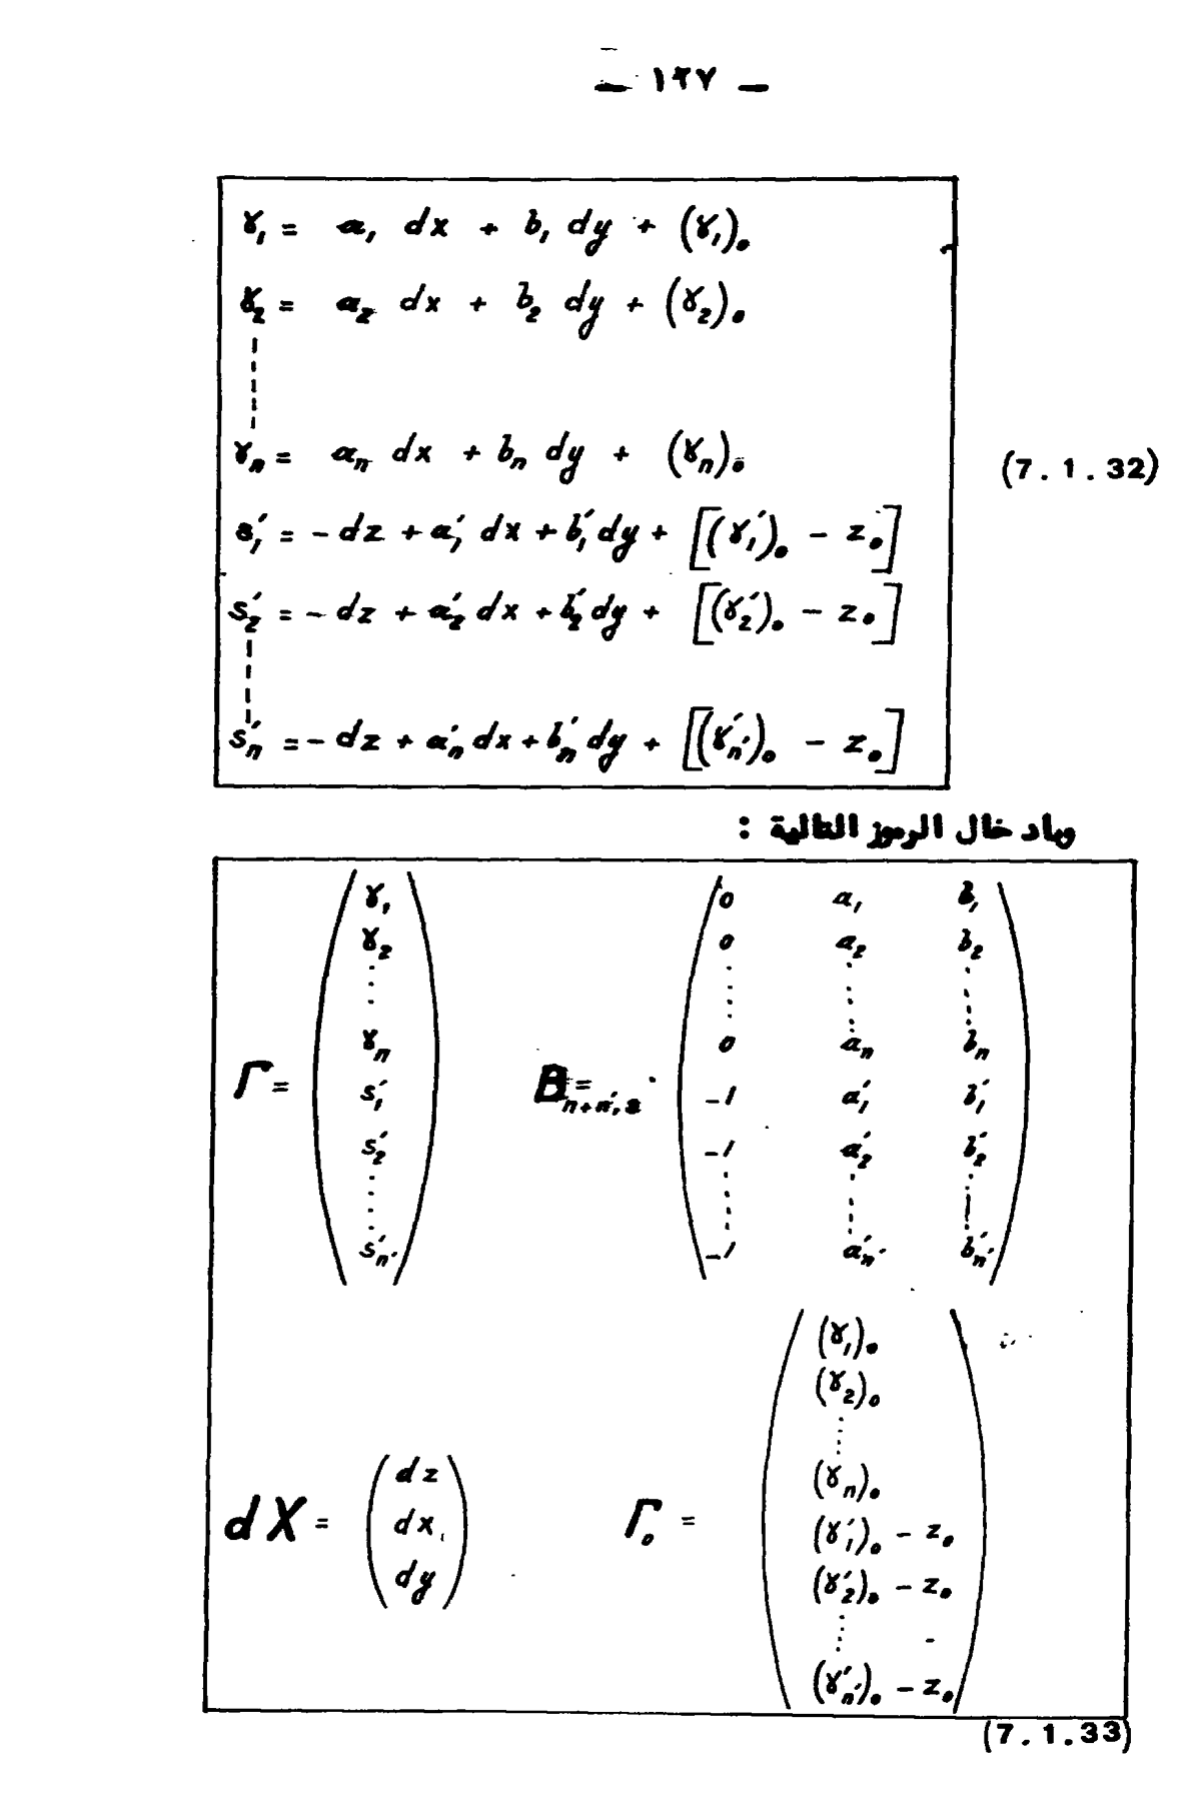 — ١٢٧ —
γ₁ = a₁ dx + b₁ dy + (γ₁)₀
γ₂ = a₂ dx + b₂ dy + (γ₂)₀
γₙ = aₙ dx + bₙ dy + (γₙ)₀
(7.1.32)
s′₁ = - dz + a′₁ dx + b′₁ dy + [(γ′₁)₀ - z₀]
s′₂ = - dz + a′₂ dx + b′₂ dy + [(γ′₂)₀ - z₀]
s′ₙ = - dz + a′ₙ dx + b′ₙ dy + [(γ′ₙ′)₀ - z₀]
وباد خال الرموز التالية :
Γ = ( γ₁ γ₂ ⋮ γₙ s′₁ s′₂ ⋮ s′ₙ′ )
B n+n′,3 =
0 a₁ b₁
0 a₂ b₂
⋮ ⋮ ⋮
0 aₙ bₙ
-1 a′₁ b′₁
-1 a′₂ b′₂
⋮ ⋮ ⋮
-1 a′ₙ′ b′ₙ′
dX = ( dz dx dy )
Γ₀ =
(γ₁)₀
(γ₂)₀
⋮
(γₙ)₀
(γ′₁)₀ - z₀
(γ′₂)₀ - z₀
⋮
(γ′ₙ′)₀ - z₀
(7.1.33)